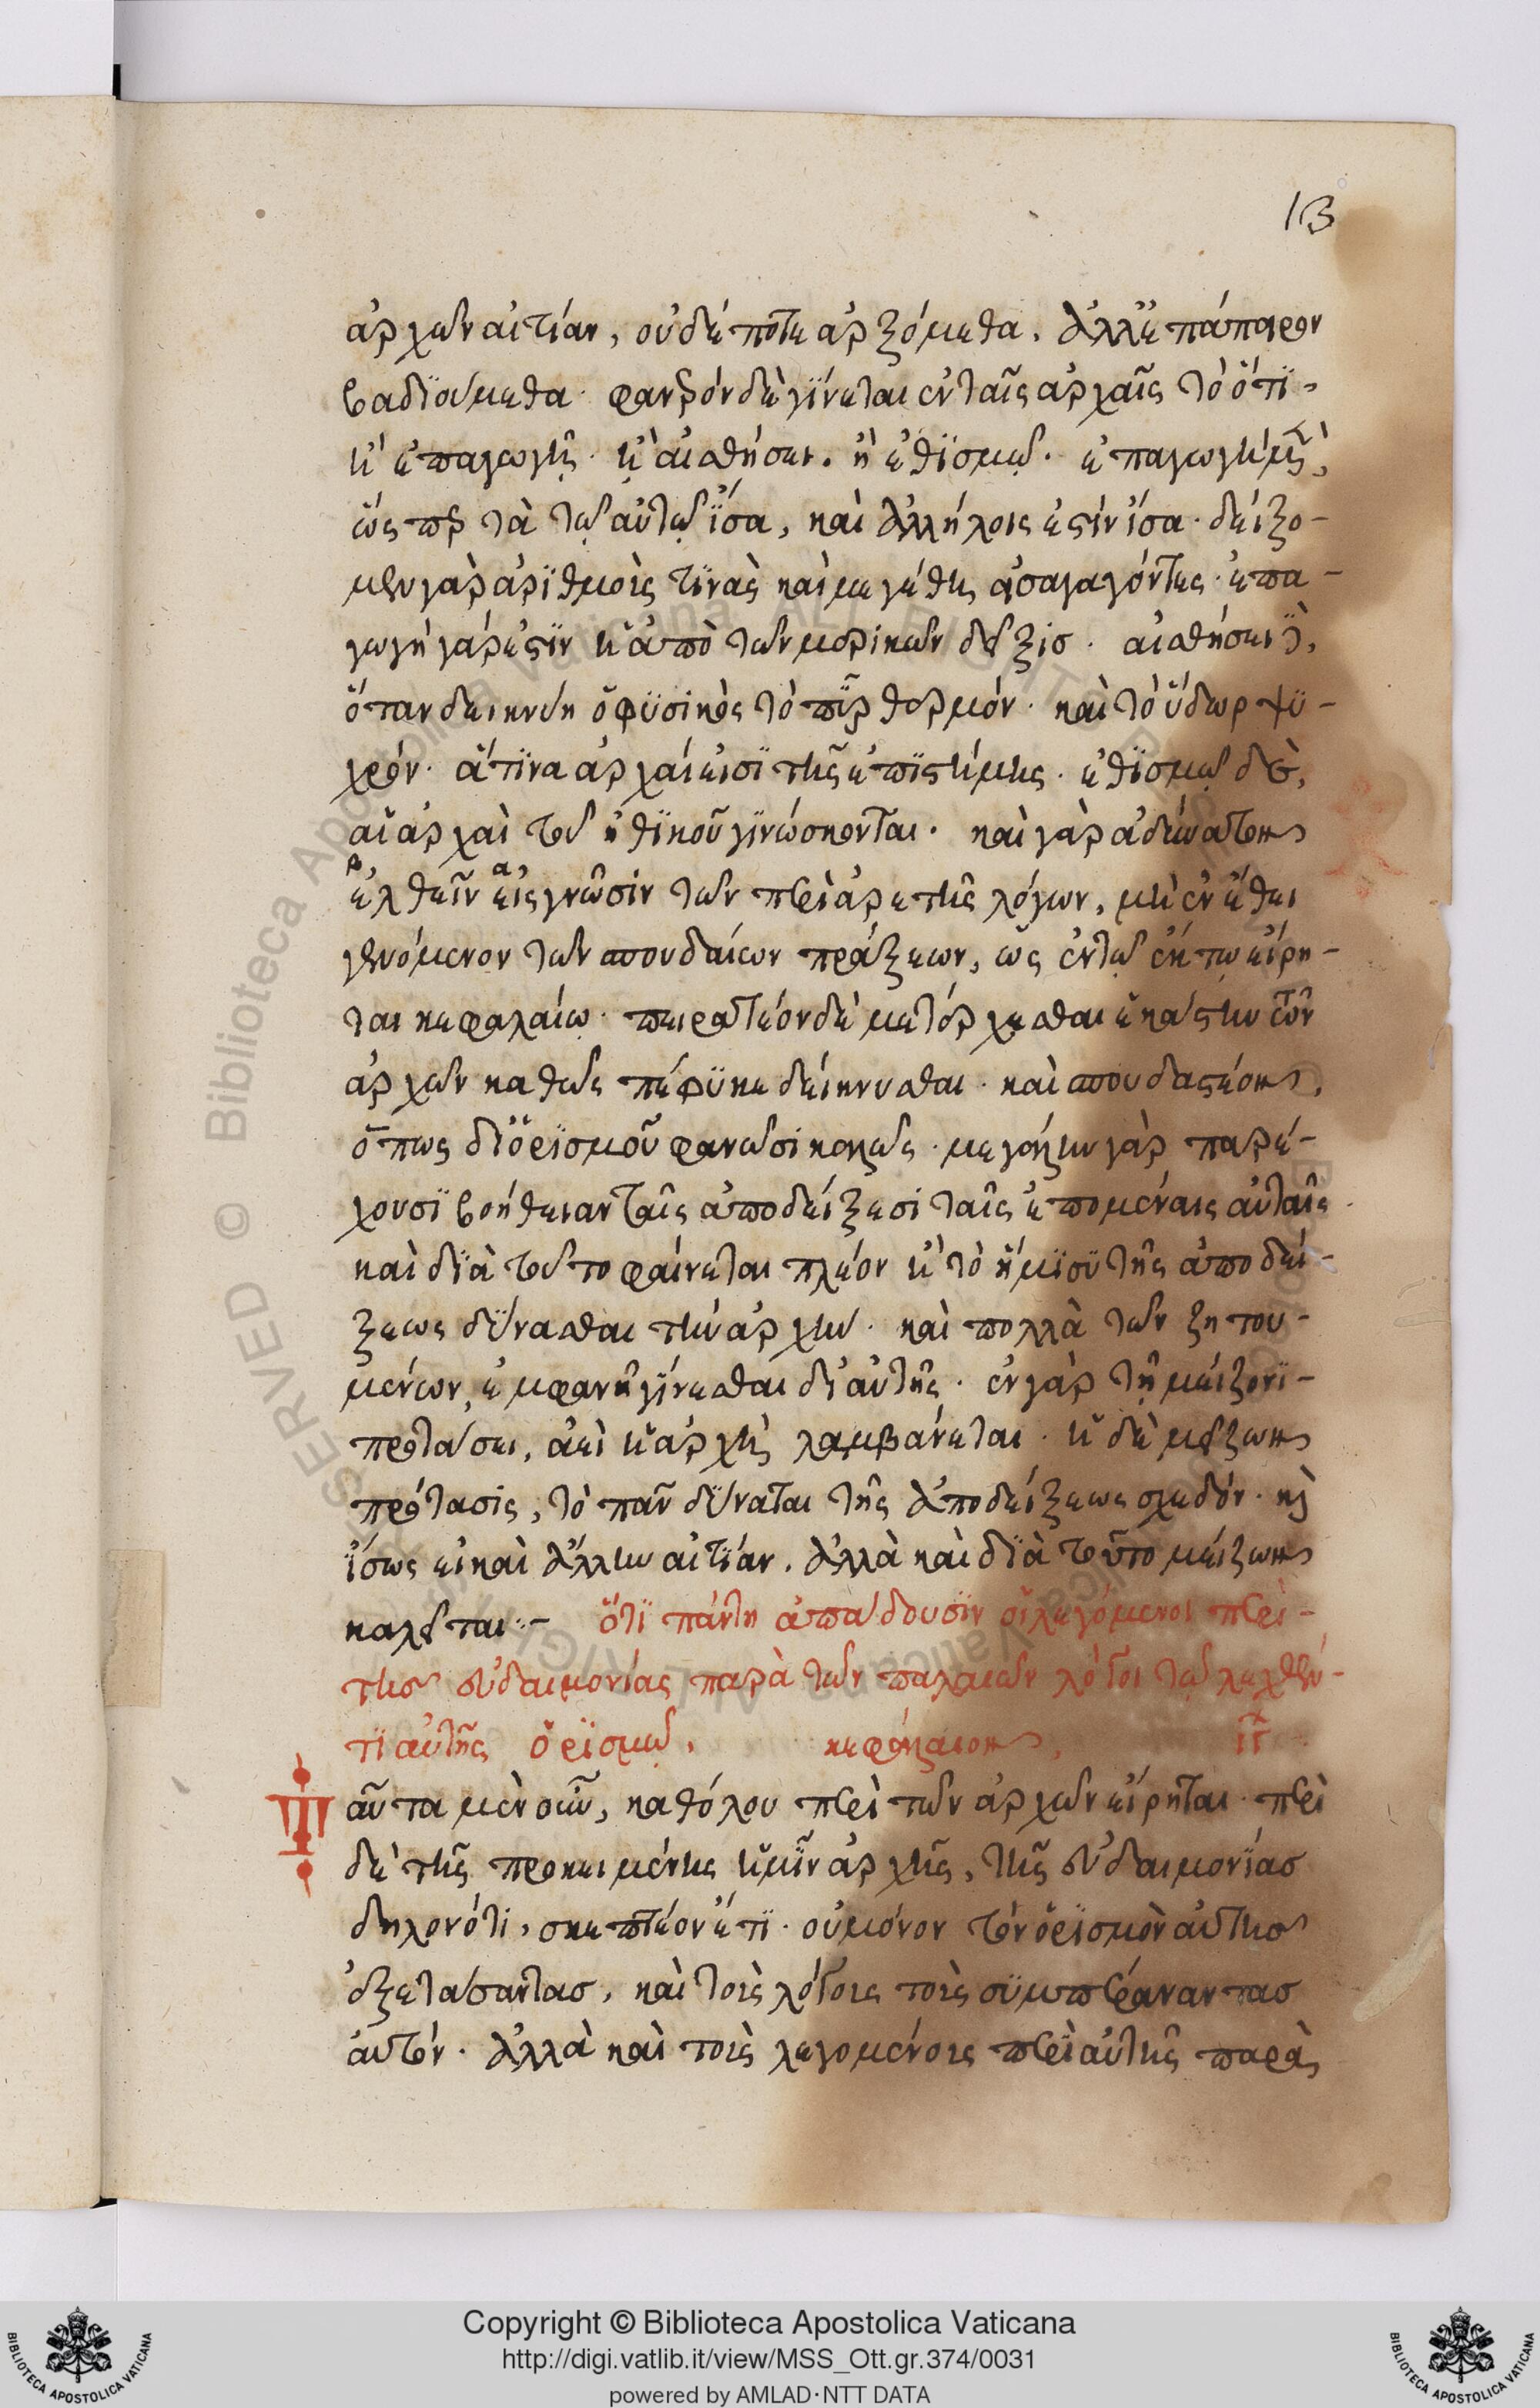 13
ἀρχῶν αἰτίαν, οὐδέποτε ἀρξόμεθα. ἀλλ' ἐπάπειρον
βαδιούμεθα· φανερὸν δὲ γίνεται ἐν ταῖς ἀρχαῖς τὸ ὅτι
ἢ ἐπαγωγῇ· ἢ αἰσθήσει. ἢ ἐθισμῷ· ἐπαγωγῇ μὲν,
ὥσπερ τὰ τῷ αὐτῷ ἴσα, καὶ ἀλλήλοις ἐστὶν ἴσα· δείξο-
μεν γὰρ ἀριθμούς τινας καὶ μεγέθη εἰσαγαγόντες· ἐπα-
γωγὴ γάρ ἐστιν ἡ ἀπὸ τῶν μερικῶν δεῖξις. αἰσθήσει δὲ,
ὅταν δεικνύῃ ὁ φυσικὸς τὸ πῦρ θερμόν· καὶ τὸ ὕδωρ ψυ-
χρόν· ἅτινα ἀρχαί εἰσι τῆς ἐπιστήμης. ἐθισμῷ δὲ,
αἱ ἀρχαὶ τοῦ ἠθικοῦ γινώσκονται. καὶ γὰρ ἀδύνατον
β α
ἐλθεῖν εἰς γνῶσιν τῶν περὶ ἀρετῆς λόγων, μὴ ἐν ἔθει
γενόμενον τῶν σπουδαίων πράξεων, ὡς ἐν τῷ ἕκτῳ εἴρη-
ται κεφαλαίῳ· πειρατέον δὲ μετέρχεσθαι ἑκάστην τῶν
ἀρχῶν καθὼς πέφυκε δείκνυσθαι· καὶ σπουδαστέον,
ὅπως δι' ὁρισμοῦ φανῶσι καλῶς. μεγάλην γὰρ παρέ-
χουσι βοήθειαν ταῖς ἀποδείξεσι ταῖς ἑπομέναις αὐταῖς
καὶ διὰ τοῦτο φαίνεται πλέον ἢ τὸ ἥμισυ τῆς ἀποδεί-
ξεως δύνασθαι τὴν ἀρχὴν. καὶ πολλὰ τῶν ζητου-
μένων, ἐμφανῆ γίνεσθαι δι' αὐτῆς. ἐν γὰρ τῇ μείζονι
προτάσει, ἀεὶ ἡ ἀρχὴ λαμβάνεται. ἡ δὲ μείζων
πρότασις, τὸ πᾶν δύναται τῆς ἀποδείξεως σχεδόν. καὶ
ἴσως εἰ καὶ ἄλλην αἰτίαν. ἀλλὰ καὶ διὰ τοῦτο μείζων
καλεῖται:- ὅτι πάντη ἀπᾴδουσιν οἱ λεγόμενοι περὶ
τῆς εὐδαιμονίας παρὰ τῶν παλαιῶν λόγοι τῷ λεχθέν-
τι αὐτῆς ὁρισμῷ. κεφάλαιον, ιγ
Ταῦτα μὲν οὖν, καθόλου περὶ τῶν ἀρχῶν εἴρηται. περὶ
δὲ τῆς προκειμένης ἡμῖν ἀρχῆς, τῆς εὐδαιμονίας
δηλονότι, σκεπτέον ἔτι. οὐ μόνον τὸν ὁρισμὸν αὐτῆς
ἐξετάσαντας, καὶ τοὺς λόγους τοὺς συμπεράναντας
αὐτόν. ἀλλὰ καὶ τοὺς λεγομένους περὶ αὐτῆς παρὰ
Copyright © Biblioteca Apostolica Vaticana
http://digi.vatlib.it/view/MSS_Ott.gr.374/0031
powered by AMLAD·NTT DATA